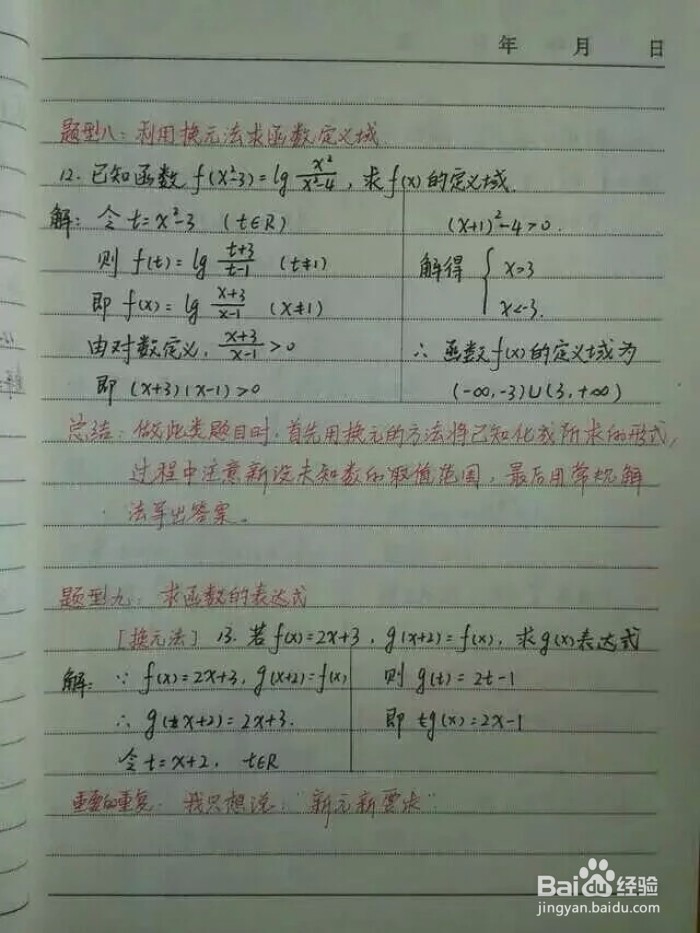 年 月 日
题型八：利用换元法求函数定义域.
12. 已知函数 f(x²-3) = lg x²/(x²-4), 求f(x)的定义域.
解: 令 t=x²-3 (t∈R)
则 f(t) = lg (t+3)/(t-1) (t≠1)
即 f(x) = lg (x+3)/(x-1) (x≠1)
由对数定义, (x+3)/(x-1) >0
即 (x+3)(x-1)>0
(x+1)²-4>0.
解得 { x>3
x<-3.
∴ 函数f(x)的定义域为
(-∞,-3)∪(3,+∞)
总结: 做此类题目时, 首先用换元的方法将已知化成所求的形式,
过程中注意新设未知数的取值范围, 最后用常规解
法写出答案。
题型九: 求函数的表达式
[换元法] 13. 若f(x)=2x+3, g(x+2)=f(x), 求g(x)表达式
解: ∵ f(x)=2x+3, g(x+2)=f(x)
∴ g(x+2)=2x+3.
令t=x+2, t∈R
则 g(t)=2t-1
即 g(x)=2x-1
重要的重复: 我只想说: "新元新要求"
Baidu经验
jingyan.baidu.com